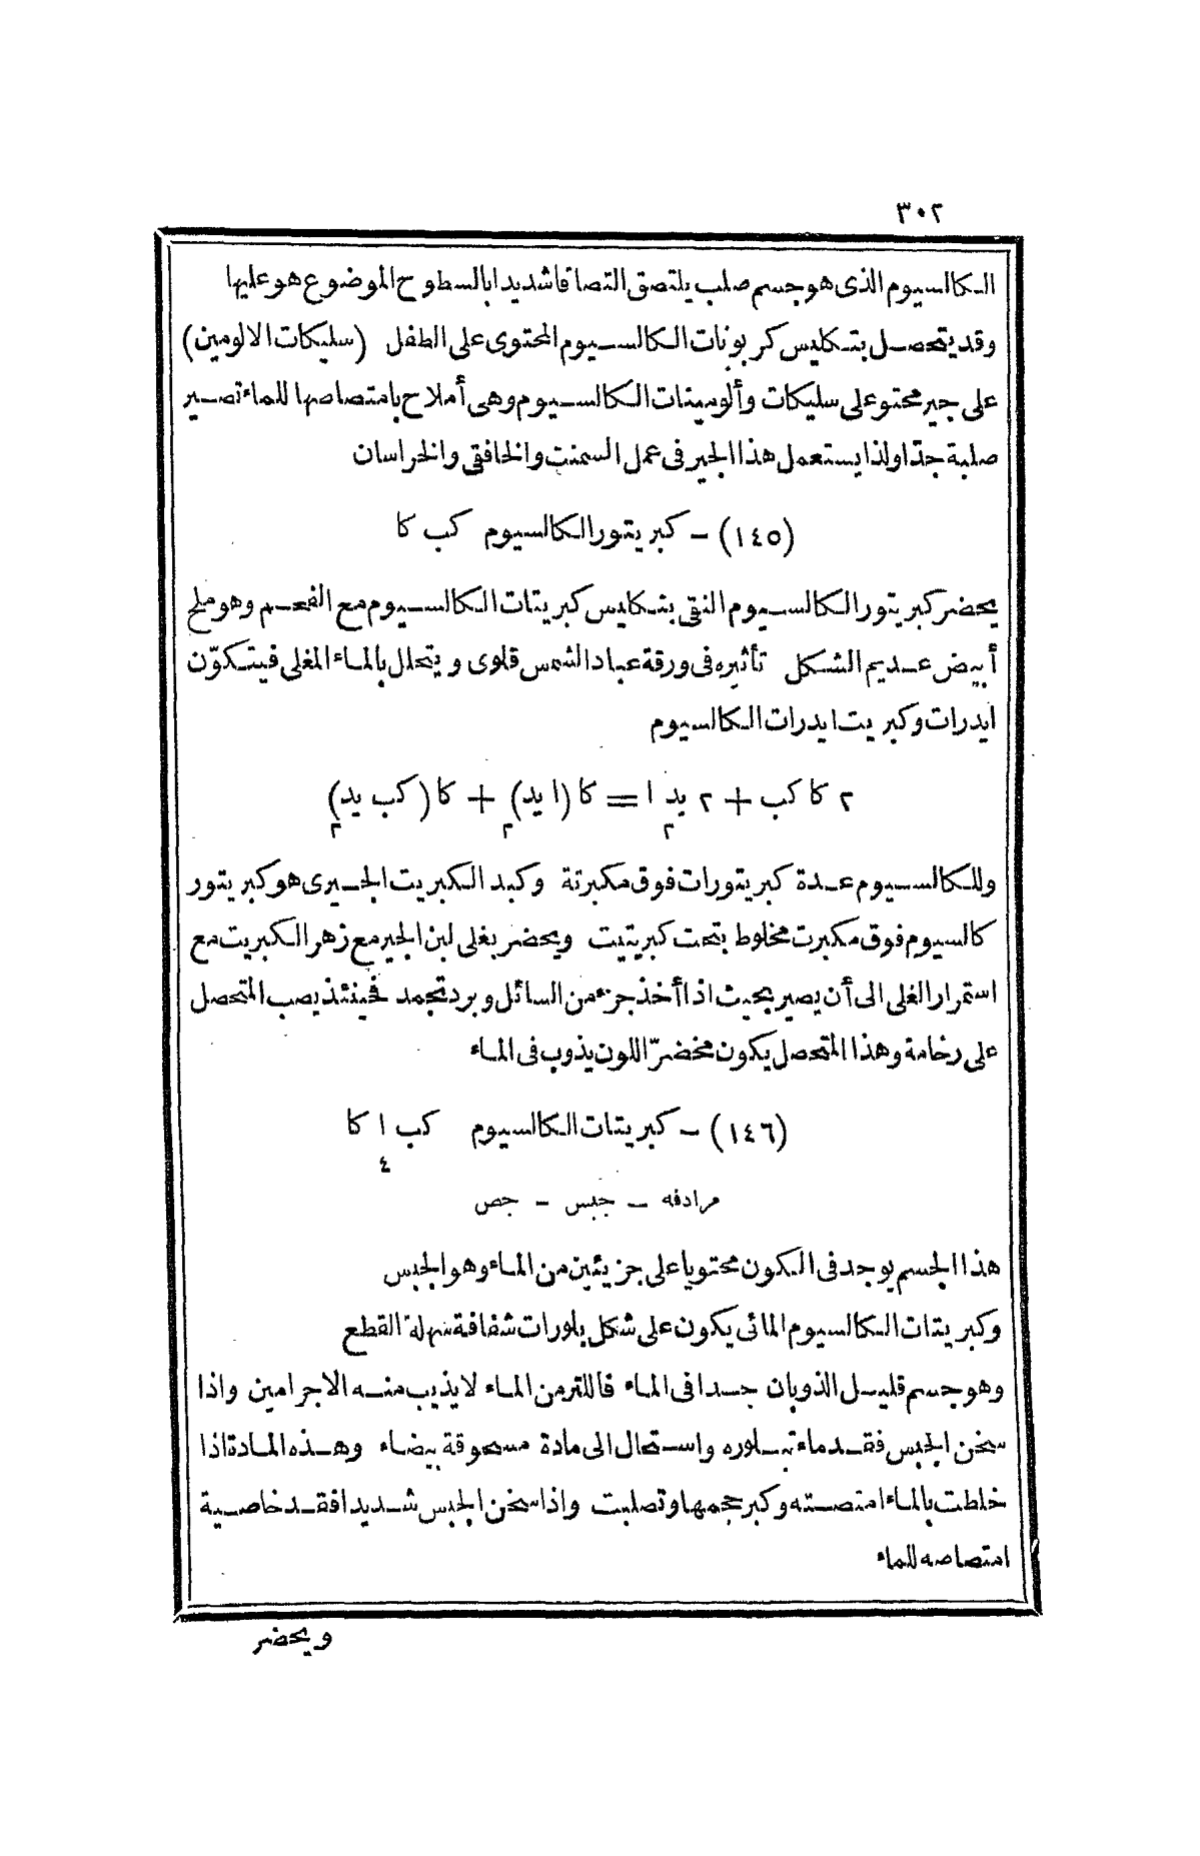 ٣٠٢
الكالسيوم الذى هو جسم صلب يلتصق التصاقا شديدا بالسطوح الموضوع هو عليها
وقد يتحصل بتكليس كربونات الكالسيوم المحتوى على الطفل (سليكات الالومين)
على جير محتو على سليكات وألومينات الكالسيوم وهى أملاح بامتصاصها للماء تصير
صلبة جدّا ولذا يستعمل هذا الجير فى عمل السمنت والخافقى والخراسان
(١٤٥) - كبريتور الكالسيوم كب كا
يحضر كبريتور الكالسيوم النقى بتكليس كبريتات الكالسيوم مع الفحم وهو ملح
أبيض عديم الشكل تأثيره فى ورقة عباد الشمس قلوى ويتحلل بالماء المغلى فيتكوّن
ايدرات وكبريت ايدرات الكالسيوم
٢ كا كب + ٢ يد٢ ا = كا (ا يد)٢ + كا (كب يد)٢
وللكالسيوم عدة كبريتورات فوق مكبرتة وكبد الكبريت الجيرى هو كبريتور
كالسيوم فوق مكبرت مخلوط بتحت كبريتيت ويحضر بغلى لبن الجير مع زهر الكبريت مع
استمرار الغلى الى أن يصير بحيث اذا أخذ جزء من السائل وبرد تجمد فحينئذ يصب المتحصل
على رخامة وهذا المتحصل يكون مخضرّ اللون يذوب فى الماء
(١٤٦) - كبريتات الكالسيوم كب ا٤ كا
مرادفه - جبس - جص
هذا الجسم يوجد فى الكون محتويا على جزيئين من الماء وهو الجبس
وكبريتات الكالسيوم المائى يكون على شكل بلورات شفافة سهلة القطع
وهو جسم قليل الذوبان جدا فى الماء فاللتر من الماء لا يذيب منه الا جرامين واذا
سخن الجبس فقد ماء تبلوره واستحال الى مادة مسحوقة بيضاء وهذه المادة اذا
خلطت بالماء امتصته وكبر حجمها وتصلبت واذا سخن الجبس شديدا فقد خاصية
امتصاصه للماء
ويحضر